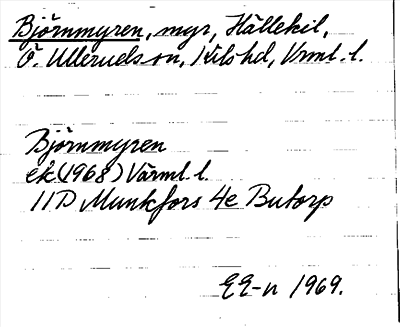 Björnmyren, myr, Hällekil,
Ö. Ulleruds sn, Kils hd, Vrml. l.
Björnmyren
ek (1968) Värml. l.
11D Munkfors 4e Butorp
EE-n 1969.